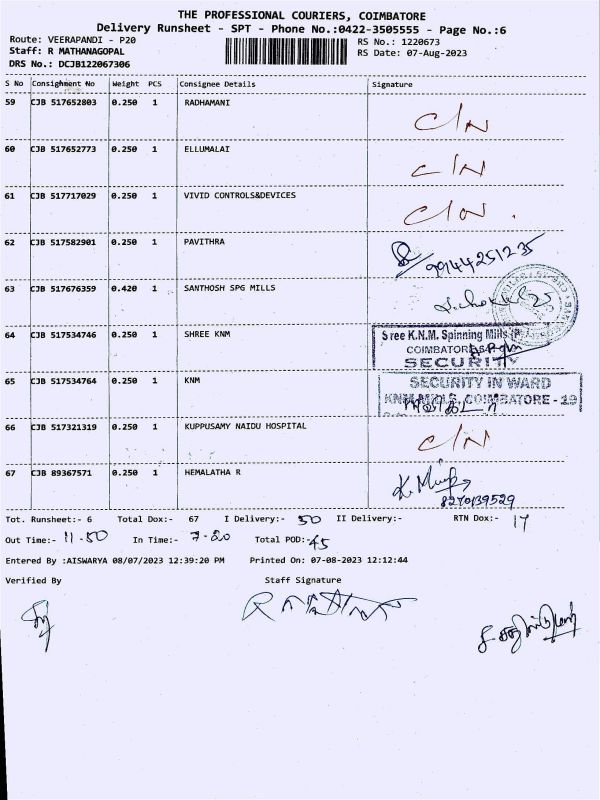 THE PROFESSIONAL COURIERS, COIMBATORE
Delivery Runsheet - SPT - Phone No.:0422-3505555 - Page No.:6
Route: VEERAPANDI - P20
RS No.: 1220673
Staff: R MATHANAGOPAL
RS Date: 07-Aug-2023
DRS No.: DCJB122067306
S No Consignment No Weight PCS Consignee Details Signature
59 CJB 517652803 0.250 1 RADHAMANI C/N
60 CJB 517652773 0.250 1 ELLUMALAI C/N
61 CJB 517717029 0.250 1 VIVID CONTROLS&DEVICES C/N
62 CJB 517582901 0.250 1 PAVITHRA 99144251235
63 CJB 517676359 0.420 1 SANTHOSH SPG MILLS
64 CJB 517534746 0.250 1 SHREE KNM Sree K.N.M. Spinning Mills (P)
COIMBATORE
SECURITY
65 CJB 517534764 0.250 1 KNM SECURITY IN WARD
KNM MILLS, COIMBATORE - 19
66 CJB 517321319 0.250 1 KUPPUSAMY NAIDU HOSPITAL C/N
67 CJB 89367571 0.250 1 HEMALATHA R
8270139529
Tot. Runsheet:- 6 Total Dox:- 67 I Delivery:- 50 II Delivery:- RTN Dox:- 17
Out Time:- 11.50 In Time:- 7-20 Total POD:- 45
Entered By :AISWARYA 08/07/2023 12:39:20 PM Printed On: 07-08-2023 12:12:44
Verified By Staff Signature